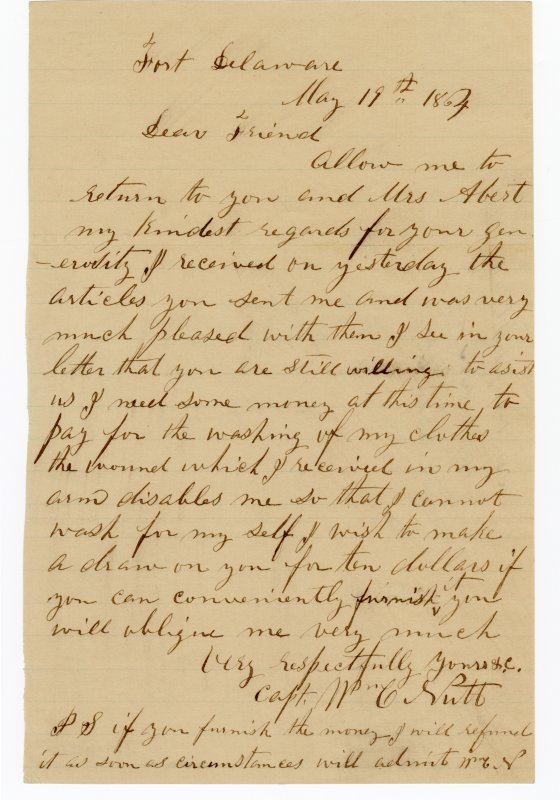 Fort Delaware
May 19th 1864
Dear Friend
Allow me to
return to you and Mrs Abert
my kindest regards for your gen
-erosity I received on yesterday the
articles you sent me and was very
much pleased with them I see in your
letter that you are still willing to asist
us I need some money at this time to
pay for the washing of my clothes
the wound which I received in my
arm disables me so that I cannot
wash for my self I wish to make
a draw on you for ten dollars if
you can conveniently furnish it you
will oblique me very much
Very respectfully Yours &c.
Capt. Wm C Nutt
P S if you furnish the money I will refund
it as soon as circumstances will admit Wm C. N